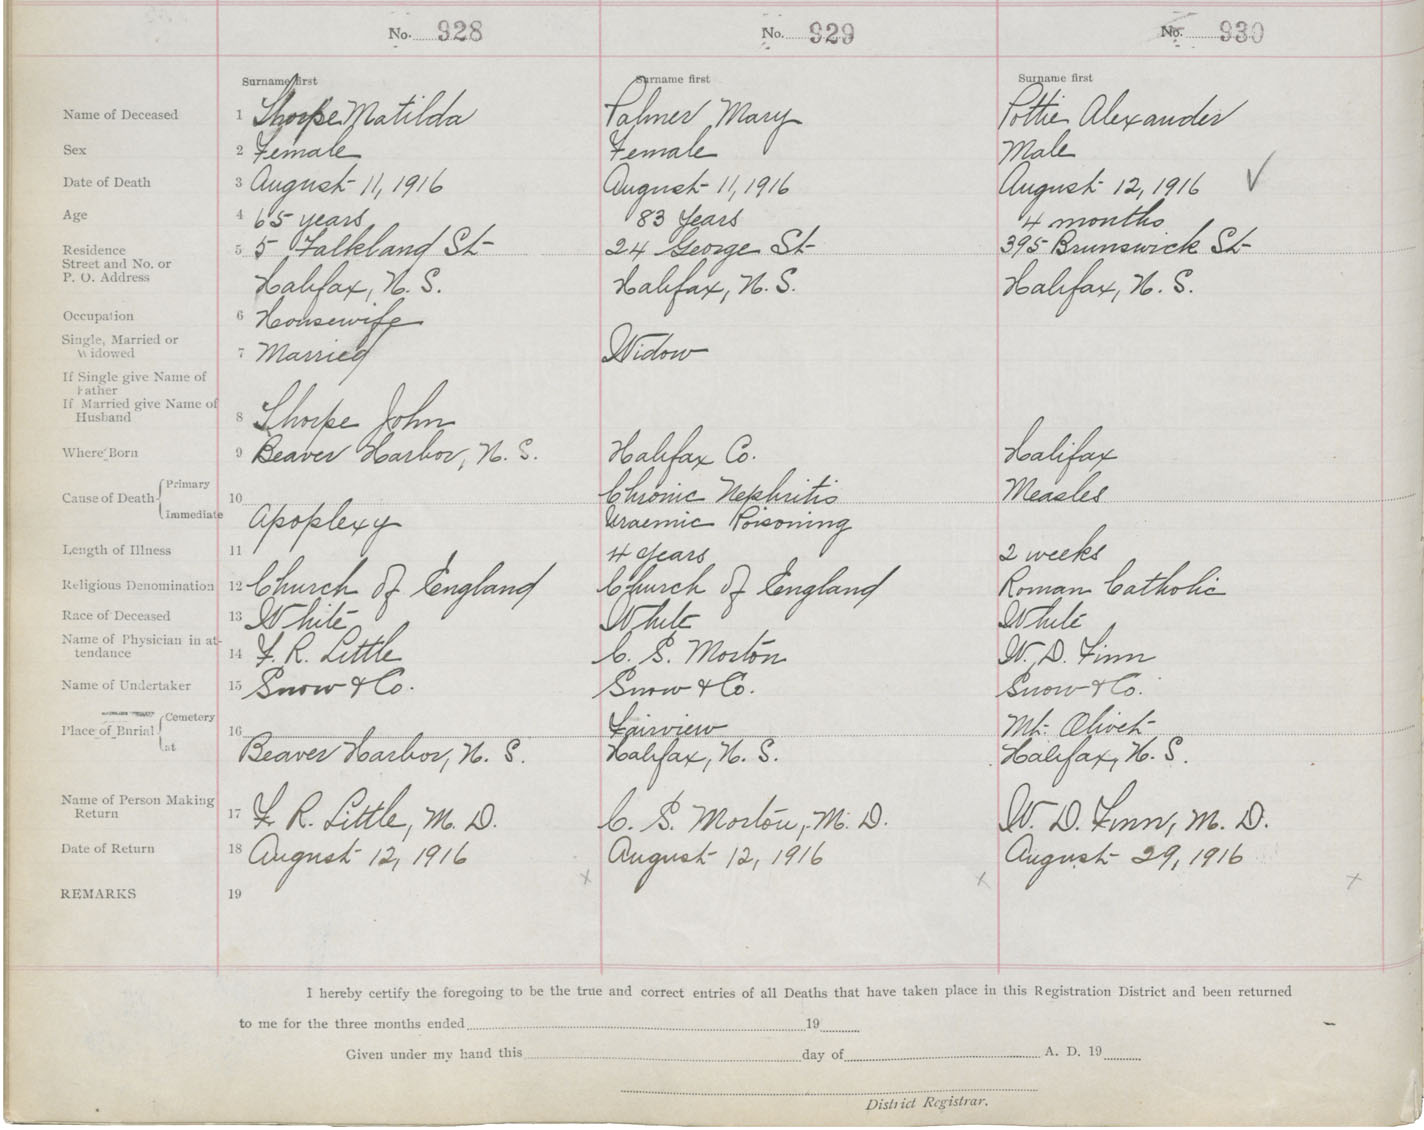 No. 928 No. 929 No. 930
Surname first Surname first Surname first
Name of Deceased 1 Thorpe Matilda Palmer Mary Pottie Alexander
Sex 2 Female Female Male
Date of Death 3 August 11, 1916 August 11, 1916 August 12, 1916 ✓
Age 4 65 years 83 Years 4 months
Residence 5 5 Falkland St 24 George St 395 Brunswick St
Street and No. or
P. O. Address Halifax, N. S. Halifax, N. S. Halifax, N. S.
Occupation 6 Housewife
Single, Married or
Widowed 7 Married Widow
If Single give Name of
Father
If Married give Name of
Husband 8 Thorpe John
Where Born 9 Beaver Harbor, N. S. Halifax Co. Halifax
Cause of Death Primary 10 Chronic Nephritis Measles
Immediate Apoplexy Uraemic Poisoning
Length of Illness 11 4 years 2 weeks
Religious Denomination 12 Church of England Church of England Roman Catholic
Race of Deceased 13 White White White
Name of Physician in at-
tendance 14 F. R. Little C. S. Morton W. D. Finn
Name of Undertaker 15 Snow & Co. Snow & Co. Snow & Co.
Place of Burial Cemetery 16 Fairview Mt. Olivet
at Beaver Harbor, N. S. Halifax, N. S. Halifax, N. S.
Name of Person Making
Return 17 F. R. Little, M. D. C. S. Morton, M. D. W. D. Finn, M. D.
Date of Return 18 August 12, 1916 August 12, 1916 August 29, 1916
x x x
REMARKS 19
I hereby certify the foregoing to be the true and correct entries of all Deaths that have taken place in this Registration District and been returned
to me for the three months ended 19
Given under my hand this day of A. D. 19
District Registrar.